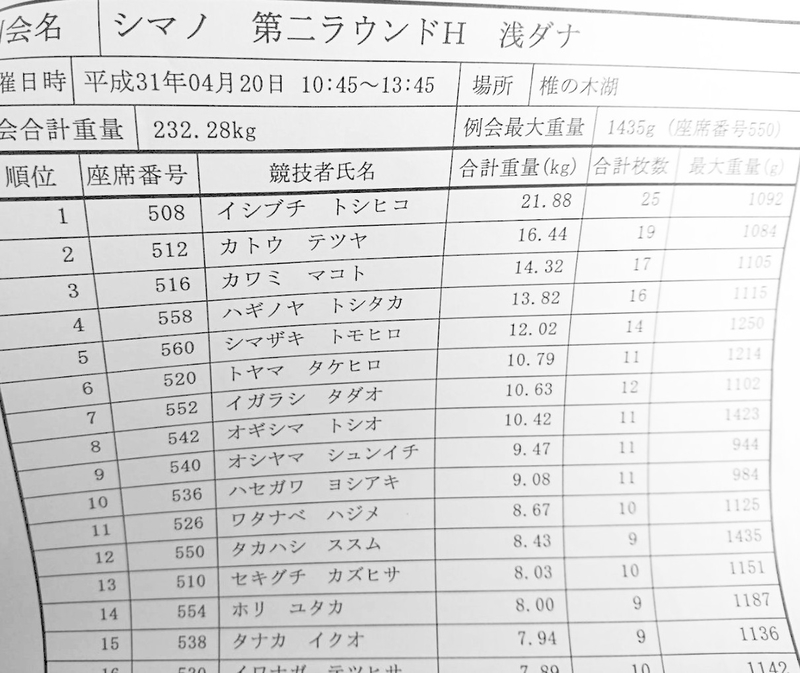 会名 シマノ 第二ラウンドH 浅ダナ
催日時 平成31年04月20日 10:45～13:45 場所 椎の木湖
会合計重量 232.28kg 例会最大重量 1435g (座席番号550)
順位 座席番号 競技者氏名 合計重量(kg) 合計枚数 最大重量(g)
1 508 イシブチ トシヒコ 21.88 25 1092
2 512 カトウ テツヤ 16.44 19 1084
3 516 カワミ マコト 14.32 17 1105
4 558 ハギノヤ トシタカ 13.82 16 1115
5 560 シマザキ トモヒロ 12.02 14 1250
6 520 トヤマ タケヒロ 10.79 11 1214
7 552 イガラシ タダオ 10.63 12 1102
8 542 オギシマ トシオ 10.42 11 1423
9 540 オシヤマ シュンイチ 9.47 11 944
10 536 ハセガワ ヨシアキ 9.08 11 984
11 526 ワタナベ ハジメ 8.67 10 1125
12 550 タカハシ ススム 8.43 9 1435
13 510 セキグチ カズヒサ 8.03 10 1151
14 554 ホリ ユタカ 8.00 9 1187
15 538 タナカ イクオ 7.94 9 1136
16 530 イワナガ テツヒサ 7.89 10 1142